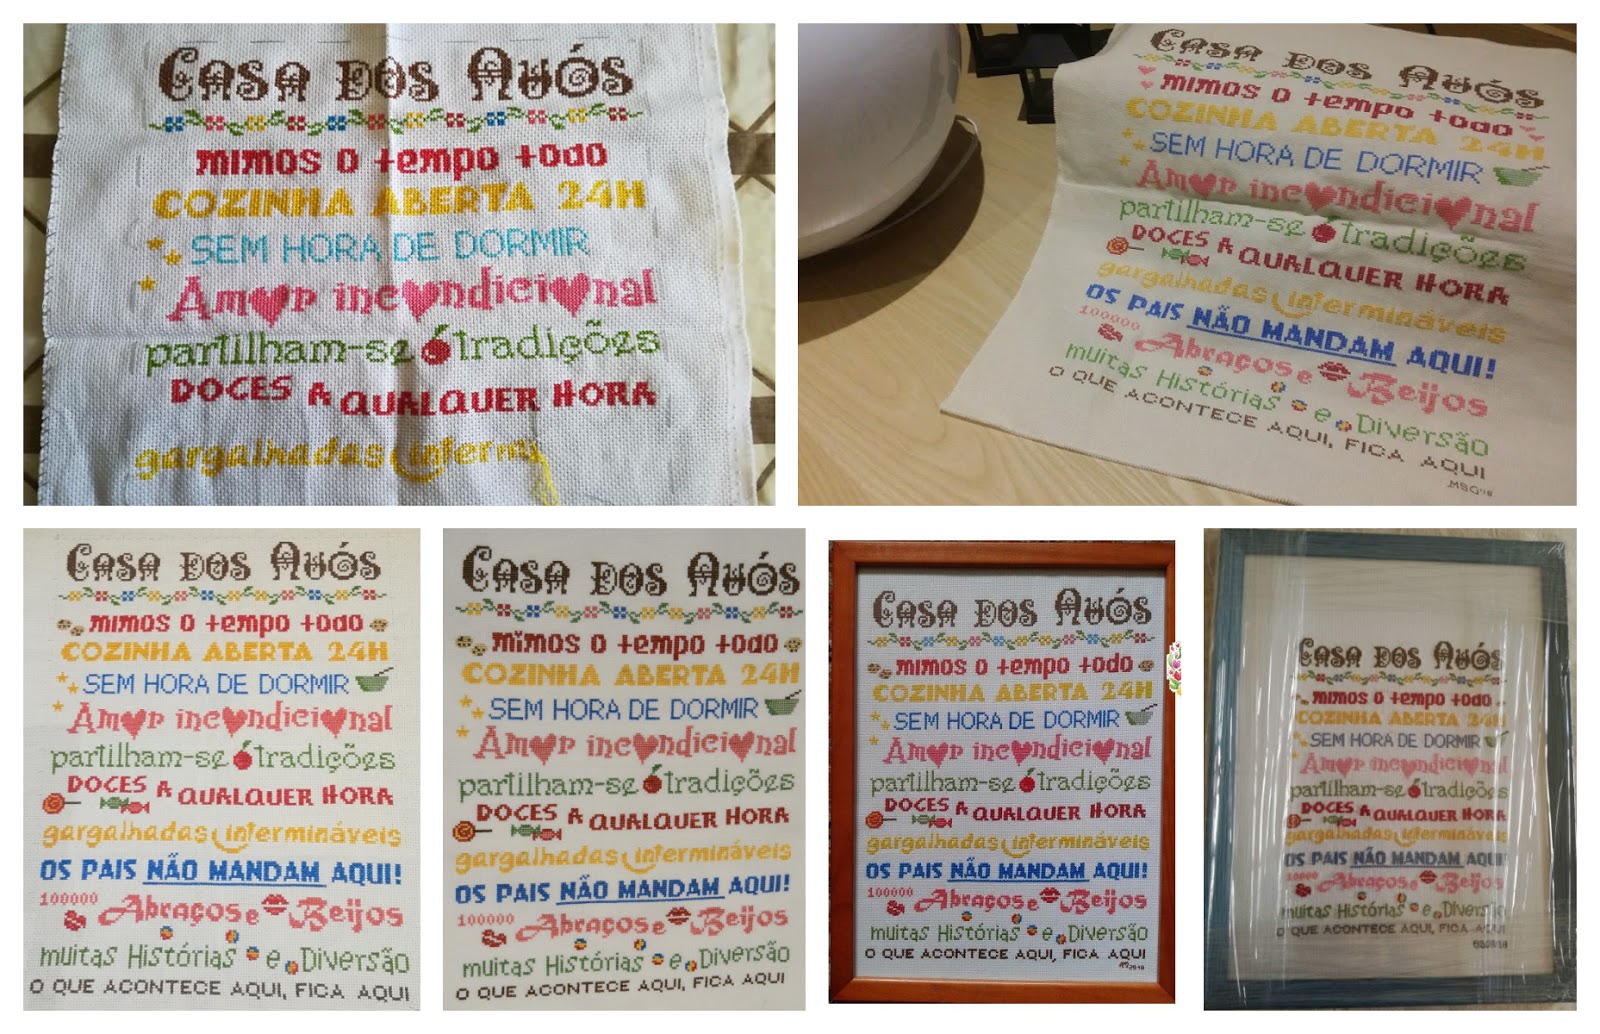 Casa dos Avós
mimos o tempo todo
COZINHA ABERTA 24H
SEM HORA DE DORMIR
Amor incondicional
partilham-se tradições
DOCES A QUALQUER HORA
gargalhadas interm
Casa dos Avós
mimos o tempo todo
COZINHA ABERTA 24H
SEM HORA DE DORMIR
Amor incondicional
partilham-se tradições
DOCES A QUALQUER HORA
gargalhadas intermináveis
OS PAIS NÃO MANDAM AQUI!
100000 Abraços e Beijos
muitas Histórias e Diversão
O QUE ACONTECE AQUI, FICA AQUI
MSG'18
Casa dos Avós
mimos o tempo todo
COZINHA ABERTA 24H
SEM HORA DE DORMIR
Amor incondicional
partilham-se tradições
DOCES A QUALQUER HORA
gargalhadas intermináveis
OS PAIS NÃO MANDAM AQUI!
100000 Abraços e Beijos
muitas Histórias e Diversão
O QUE ACONTECE AQUI, FICA AQUI
Casa dos Avós
mimos o tempo todo
COZINHA ABERTA 24H
SEM HORA DE DORMIR
Amor incondicional
partilham-se tradições
DOCES A QUALQUER HORA
gargalhadas intermináveis
OS PAIS NÃO MANDAM AQUI!
100000 Abraços e Beijos
muitas Histórias e Diversão
O QUE ACONTECE AQUI, FICA AQUI
Casa dos Avós
mimos o tempo todo
COZINHA ABERTA 24H
SEM HORA DE DORMIR
Amor incondicional
partilham-se tradições
DOCES A QUALQUER HORA
gargalhadas intermináveis
OS PAIS NÃO MANDAM AQUI!
100000 Abraços e Beijos
muitas Histórias e Diversão
O QUE ACONTECE AQUI, FICA AQUI
Casa dos Avós
mimos o tempo todo
COZINHA ABERTA 24H
SEM HORA DE DORMIR
Amor incondicional
partilham-se tradições
DOCES A QUALQUER HORA
gargalhadas intermináveis
OS PAIS NÃO MANDAM AQUI!
100000 Abraços e Beijos
muitas Histórias e Diversão
O QUE ACONTECE AQUI, FICA AQUI